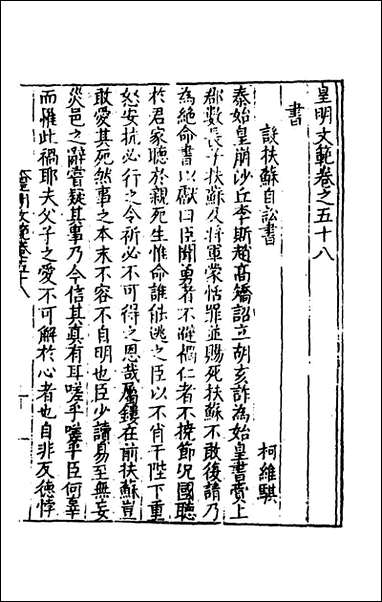 皇明文範卷之五十八
書
設扶蘇自訟書
柯維騏
秦始皇崩沙丘李斯趙高矯詔立胡亥詐為始皇書賣上
郡數長子扶蘇及將軍蒙恬罪並賜死扶蘇不敢復請乃
為絕命書以獻曰臣聞勇者不避禍仁者不撓節況國聽
於君家聽於親死生惟命誰能逃之臣以不肖干陛下重
怒安抗必行之令祈必不可得之恩哉屬鏤在前扶蘇豈
敢愛其死然事之本末不容不自明也臣少讀易至無妄
災邑之辭嘗疑其事乃今信其真有耳嗟乎嗟乎臣何辜
而罹此禍耶夫父子之愛不可解於心者也自非反德悖
皇明文範卷五十八